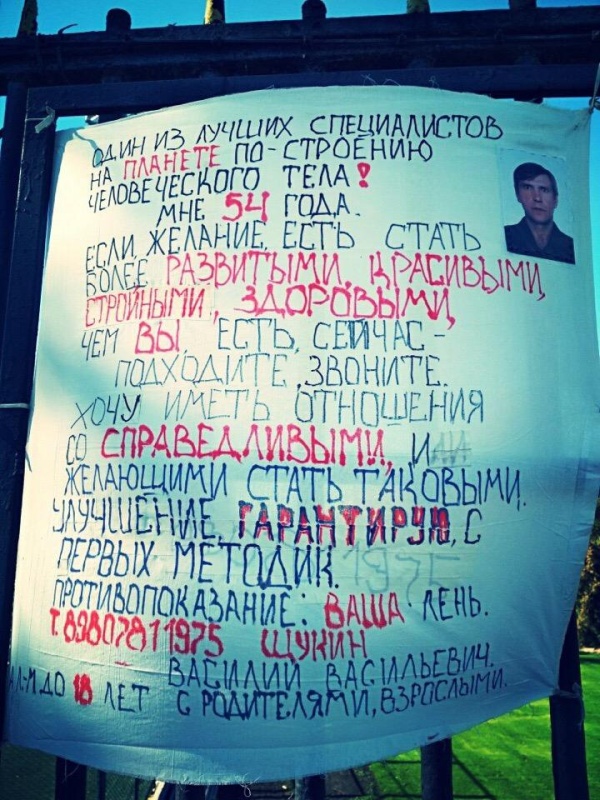 ОДИН ИЗ ЛУЧШИХ СПЕЦИАЛИСТОВ
НА ПЛАНЕТЕ ПО-СТРОЕНИЮ
ЧЕЛОВЕЧЕСКОГО ТЕЛА!
МНЕ 54 ГОДА.
ЕСЛИ, ЖЕЛАНИЕ, ЕСТЬ СТАТЬ
БОЛЕЕ РАЗВИТЫМИ, КРАСИВЫМИ,
СТРОЙНЫМИ, ЗДОРОВЫМИ,
ЧЕМ ВЫ ЕСТЬ, СЕЙЧАС-
ПОДХОДИТЕ, ЗВОНИТЕ.
ХОЧУ ИМЕТЬ ОТНОШЕНИЯ
СО СПРАВЕДЛИВЫМИ, ИЛИ
ЖЕЛАЮЩИМИ СТАТЬ ТАКОВЫМИ.
УЛУЧШЕНИЕ, ГАРАНТИРУЮ, С
ПЕРВЫХ МЕТОДИК.
ПРОТИВОПОКАЗАНИЕ: ВАША ЛЕНЬ.
Т. 89807811975 ЩУКИН
ВАСИЛИЙ ВАСИЛЬЕВИЧ.
ДО 18 ЛЕТ С РОДИТЕЛЯМИ, ВЗРОСЛЫМИ.